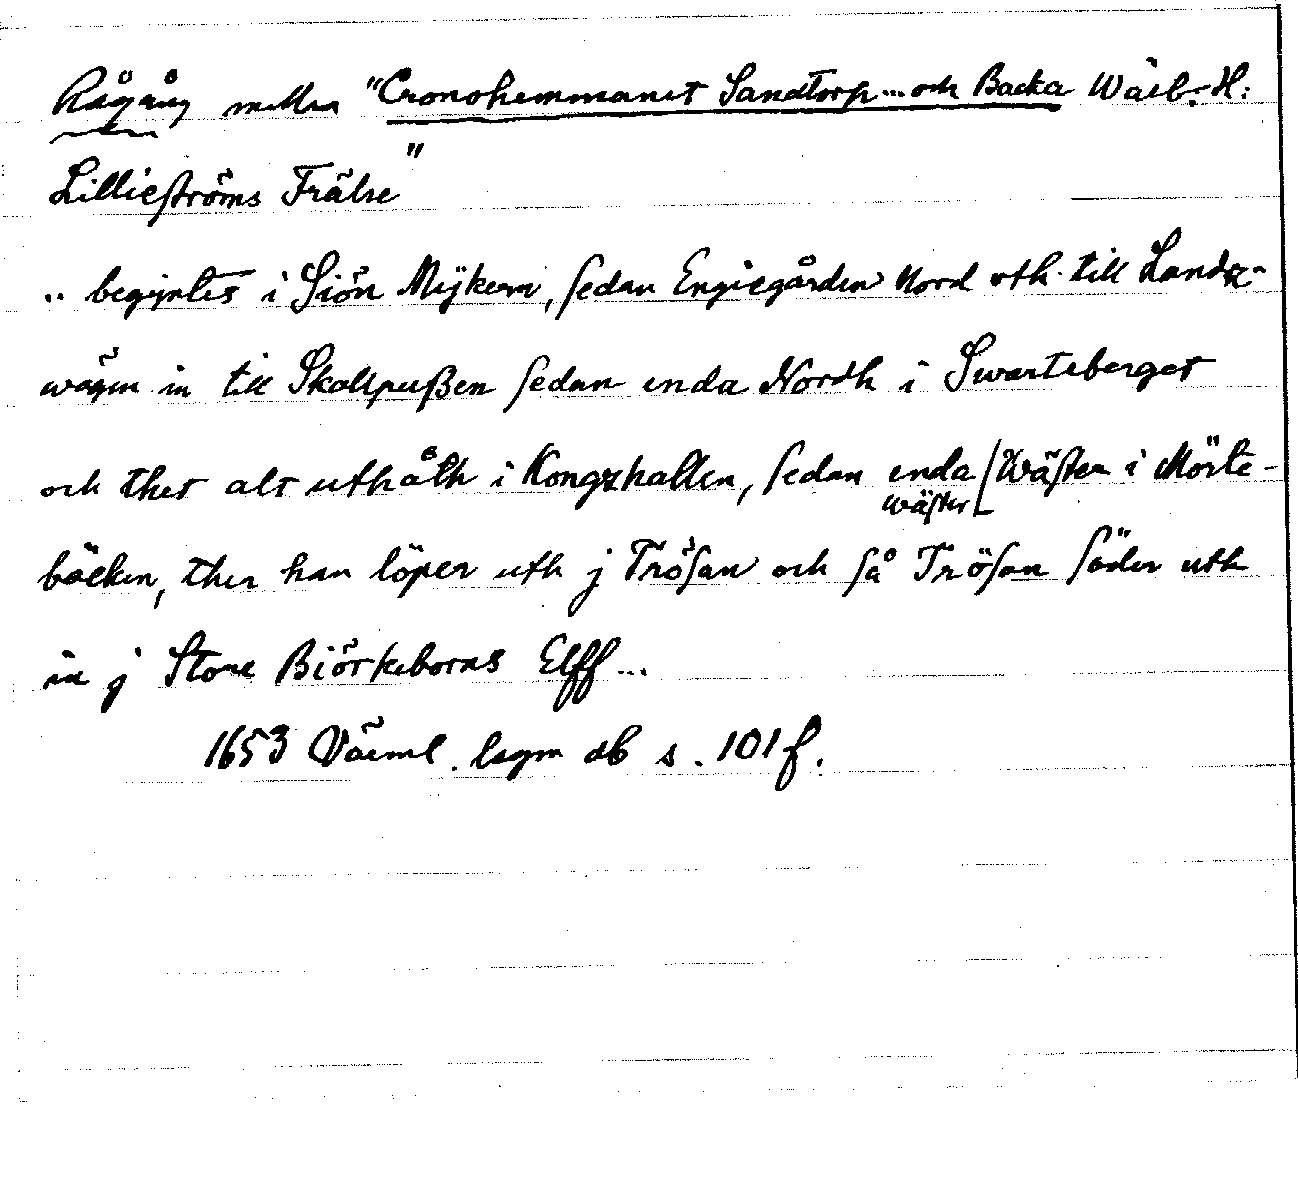 Rågång mellan "Cronohemmanet Sandtorp ... och Backa Wälb. H:
Lillieströms Frälse"
.. begyntes i Siön Mÿkern, sedan Engiegården Nord uth till Landz-
wägen in till Skallpußen sedan enda Nordh i Swarteberget
och ther alt uthåth i Kongzhallen, sedan enda [Wästen i Mörte-
wäster
bäcken, ther han löper uth j Trösan och så Trösan söder uth
in j Store Biörkeborns Elff ...
1653 Värml. lagm db s. 101 f.